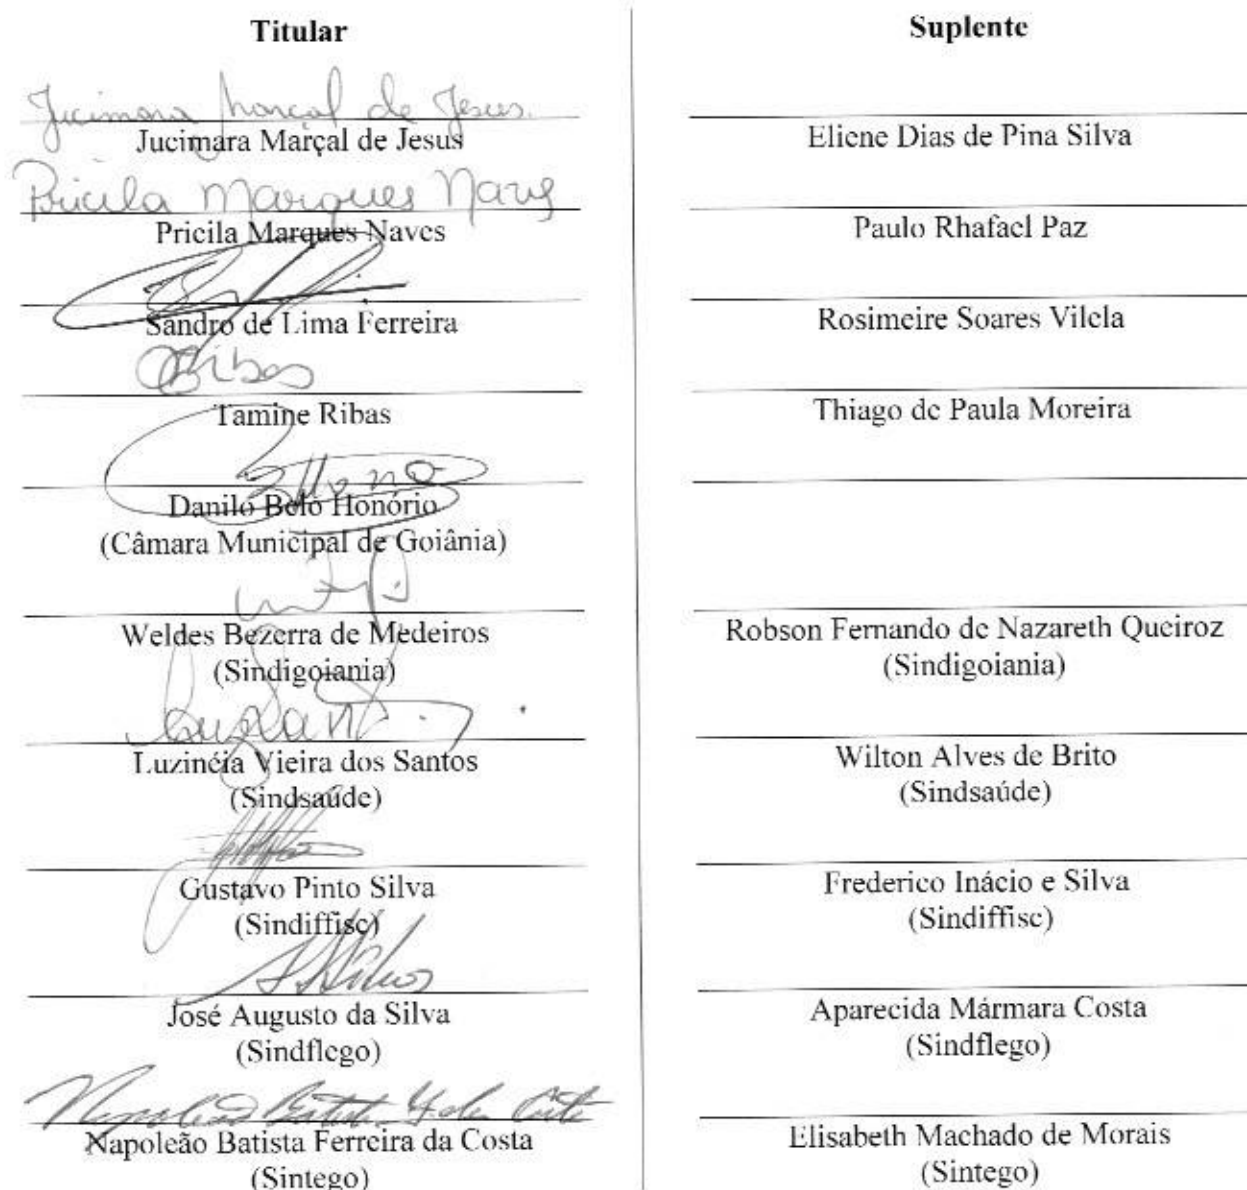 Titular
Jucimara Marçal de Jesus.
Jucimara Marçal de Jesus
Pricila Marques Naves
Pricila Marques Naves
Sandro de Lima Ferreira
Ribas
Tamine Ribas
Danilo Belo Honório
(Câmara Municipal de Goiânia)
Weldes Bezerra de Medeiros
(Sindigoiania)
Luzinéia Vieira dos Santos
(Sindsaúde)
Gustavo Pinto Silva
(Sindiffisc)
José Augusto da Silva
(Sindflego)
Napoleão Batista
Napoleão Batista Ferreira da Costa
(Sintego)
Suplente
Eliene Dias de Pina Silva
Paulo Rhafael Paz
Rosimeire Soares Vilela
Thiago de Paula Moreira
Robson Fernando de Nazareth Queiroz
(Sindigoiania)
Wilton Alves de Brito
(Sindsaúde)
Frederico Inácio e Silva
(Sindiffisc)
Aparecida Mármara Costa
(Sindflego)
Elisabeth Machado de Morais
(Sintego)